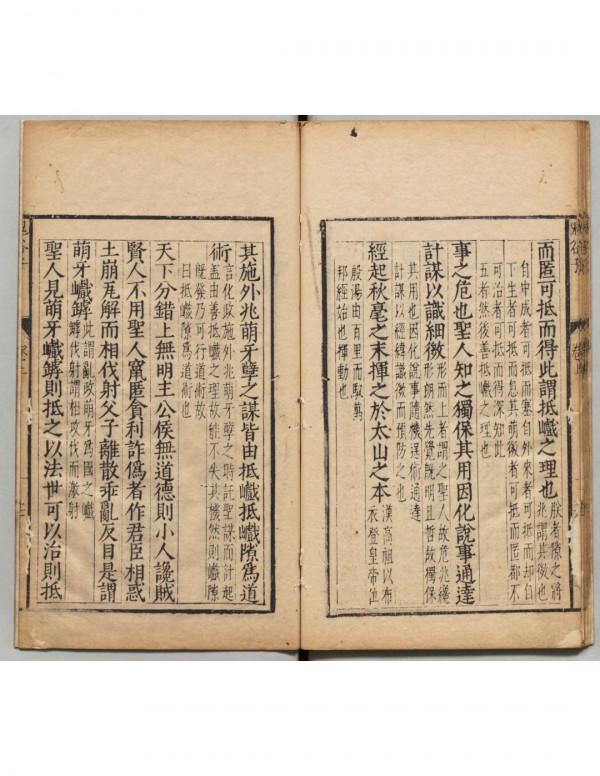 而匿可抵而得此謂抵巇之理也朕者隙之將兆謂其微也
自中成者可抵而塞自外來者可抵而却自
下生者可抵而息其萌微者可抵而匿都不
可治者可抵而得深知此
五者然後善抵巇之理也
事之危也聖人知之獨保其用因化說事通達
計謀以識細微形而上者謂之聖人故危兆纔形朗然先覺既明且哲故獨保
其用也因化說事隨機逞術通達
計謀以經緯識微而預防之也
經起秋毫之末揮之於太山之本漢高祖以布衣登皇帝位
殷湯由百里而馭萬
邦經始也揮動也
其施外兆萌牙孽之謀皆由抵巇抵巇隙爲道
術言化政施外兆萌牙孽之時託聖謀而計起蓋由善抵巇之理故能不失其機然則巇隙
既發乃可行道術故
曰抵巇隙爲道術也
天下分錯上無明主公侯無道德則小人讒賊
賢人不用聖人竄匿貪利詐僞者作君臣相惑
土崩瓦解而相伐射父子離散乖亂反目是謂
萌牙巇罅此謂亂政萌牙爲國之巇罅伐射謂相攻伐而激射
聖人見萌牙巇罅則抵之以法世可以治則抵